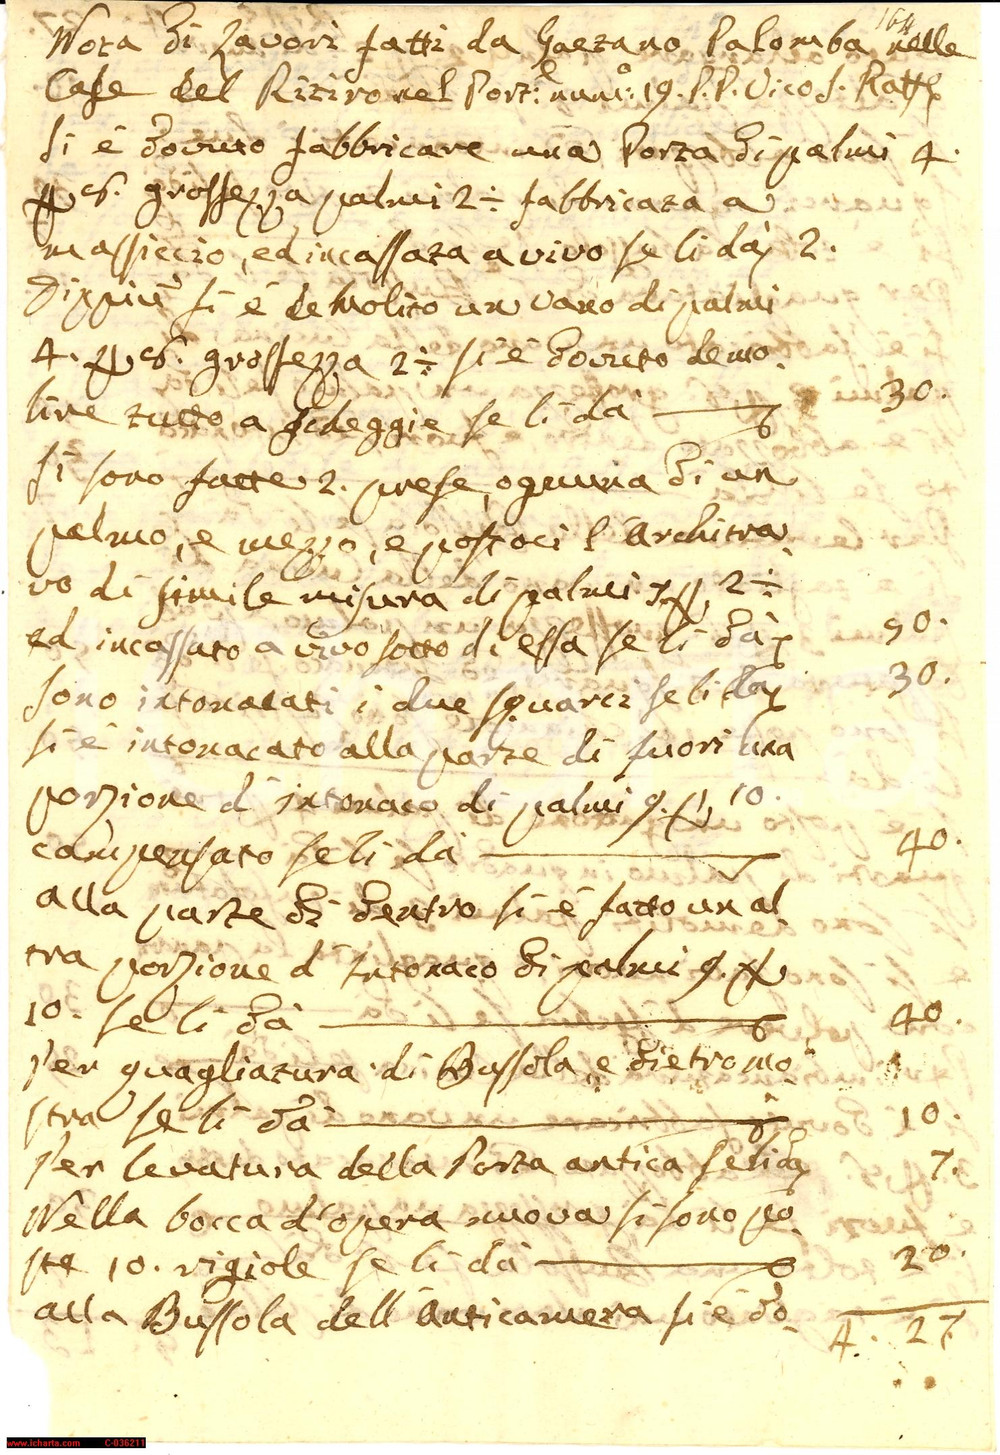 164
Nota di Lavori fatti da Gaetano Palomba nelle
Case del Ritiro nel Port:e num:o 19. P.P. Vico S. Raff.
Si é dovuto fabbricare una Porta di palmi 4.
p. 6. grossezza palmi 2÷ fabbricata a
massiccio, ed incassata a vivo se li dà 2.
Dippiù si é demolito un vano di palmi
4. p. 6. grossezza 2÷ si é dovuto demo
lire tutto a scheggie se li dà 30.
Si sono fatte 2. prese, ognuna di un
palmo, e mezzo, e postoci l'Architra
vo di simile misura di palmi 7 p. 2÷
ed incassato a vivo sotto di essa se li dà 90.
sono intonacati i due squarci se li dà 30.
si é intonacato alla parte di fuori una
porzione d'intonaco di palmi 9. p. 10.
compensato se li dà 40.
alla parte di dentro si é fatto un al
tra porzione d'Intonaco di palmi 9. p.
10. se li dà 40.
Per quagliatura di Bussola, e dietromo
stra se li dà 10.
Per levatura della Porta antica se li dà 7.
Nella bocca d'opera nuova si sono po
ste 10. rigiole se li dà 20.
alla Bussola dell'Anticamera si é do
4. 27
www.icharta.com C-036211